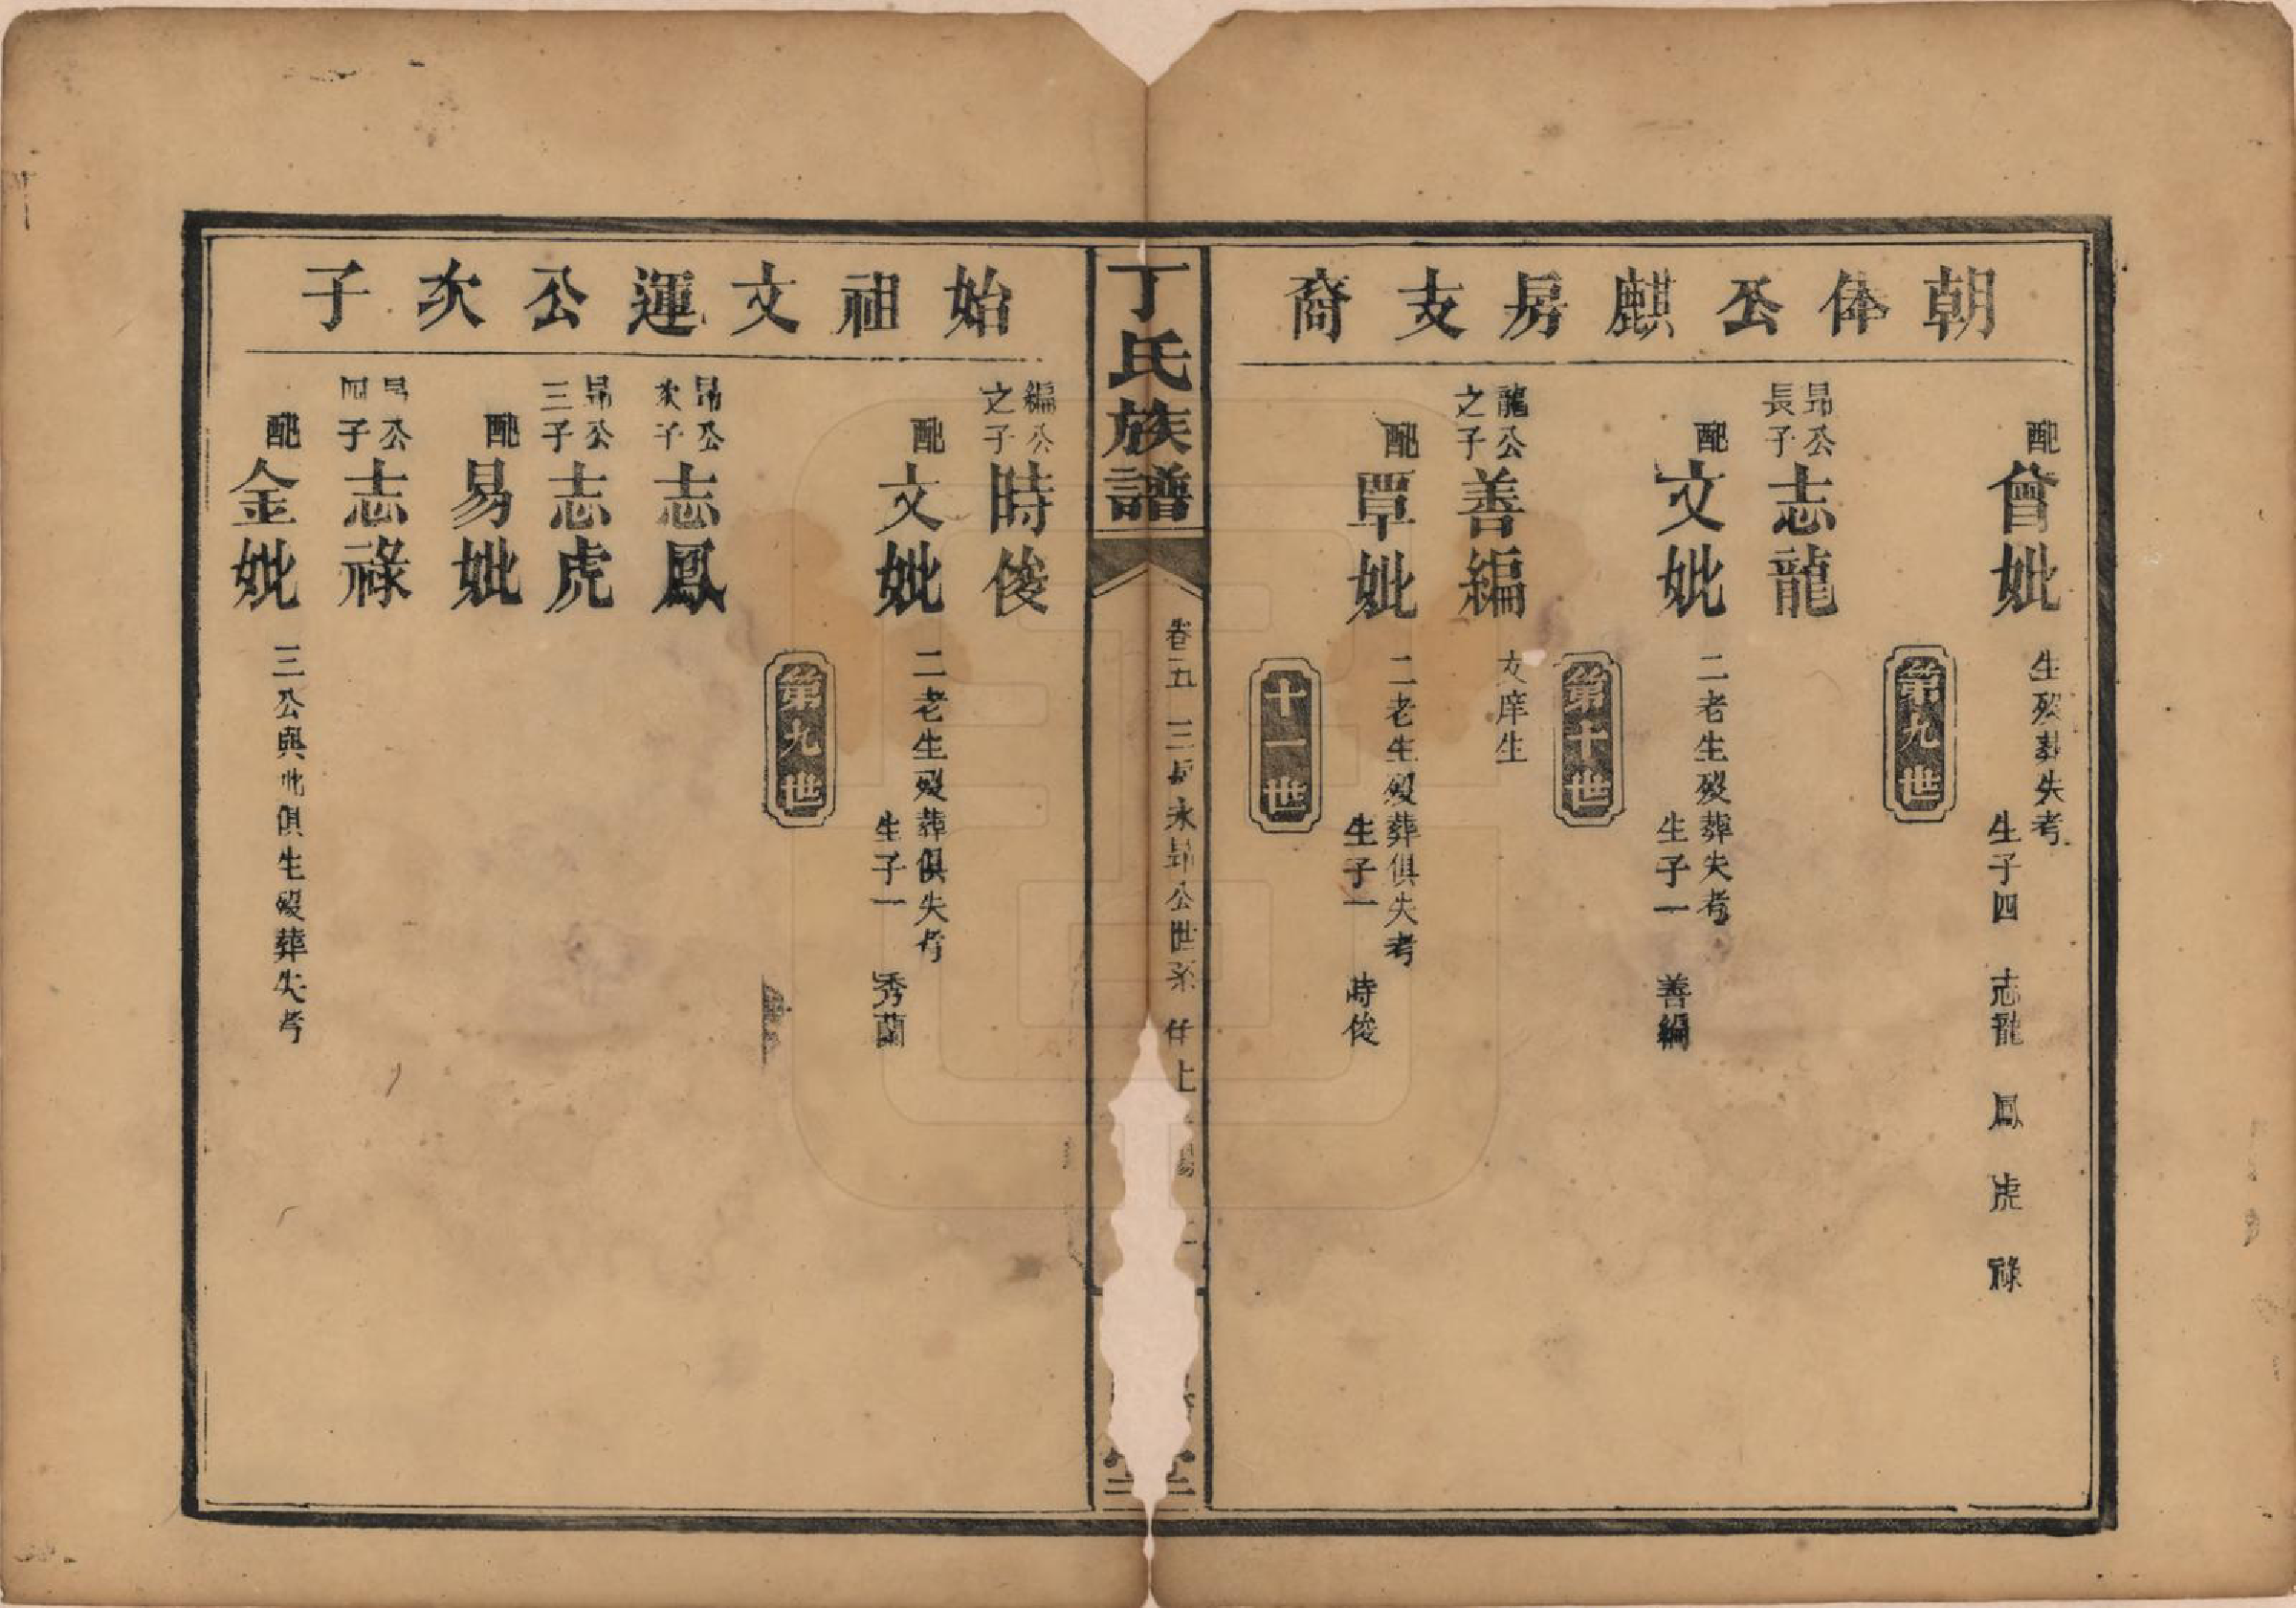 朝俸公麒房支裔
配曾妣
生歿葬失考
生子四 志龍 鳳 虎 祿
第九世
昂公長子志龍
配文妣
二老生歿葬失考
生子一 善編
第十世
龍公之子善編
文庠生
配覃妣
二老生歿葬俱失考
生子一 時俊
十一世
丁氏族譜
卷五 三房永昂公世系 仟上
始祖文運公次子
編公之子時俊
配文妣
二老生歿葬俱失考
生子一 秀蘭
第九世
昂公次子志鳳
昂公三子志虎
配易妣
昂公四子志祿
配金妣
三公與妣俱生歿葬失考